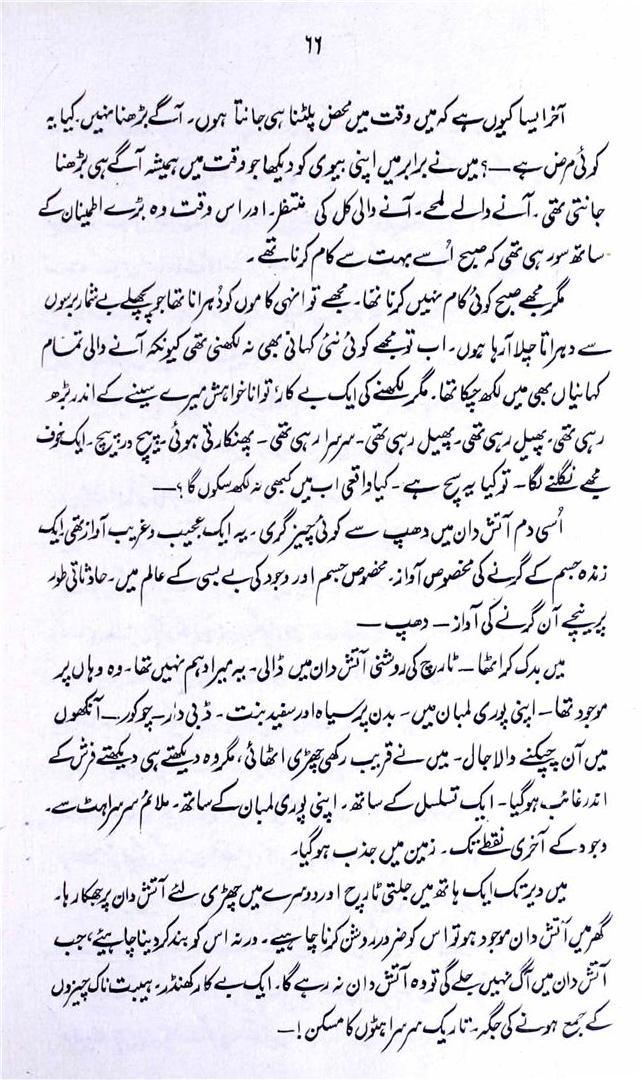 ۶۶
آخر ایسا کیوں ہے کہ میں وقت میں محض پلٹنا ہی جانتا ہوں۔ آگے بڑھنا نہیں۔ کیا یہ
کوئی مرض ہے — ؟ میں نے برابر میں اپنی بیوی کو دیکھا جو وقت میں ہمیشہ آگے ہی بڑھنا
جانتی تھی۔ آنے والے لمحے۔ آنے والی کل کی منتظر۔ اور اس وقت وہ بڑے اطمینان کے
ساتھ سو رہی تھی کہ صبح اُسے بہت سے کام کرنا تھے۔
مگر مجھے صبح کوئی کام نہیں کرنا تھا۔ مجھے تو انہی کاموں کو دُہرانا تھا جو پچھلے بے شمار برسوں
سے دہراتا چلا آ رہا ہوں۔ اب تو مجھے کوئی نئی کہانی بھی نہ لکھنی تھی کیونکہ آنے والی تمام
کہانیاں بھی میں لکھ چکا تھا۔ مگر لکھنے کی ایک بے کار، توانا خواہش میرے سینے کے اندر بڑھ
رہی تھی۔ پھیل رہی تھی۔ پھیل رہی تھی۔ سرسرا رہی تھی۔ پھنکارتی ہوئی۔ پیچ در پیچ۔ ایک خوف
مجھے نگلنے لگا۔ تو کیا یہ سچ ہے۔ کیا واقعی اب میں کبھی نہ لکھ سکوں گا ؟ —
اُسی دم آتش دان میں دھپ سے کوئی چیز گری۔ یہ ایک عجیب و غریب آواز تھی ایک
زندہ جسم کے گرنے کی مخصوص آواز۔ مخصوص جسم اور وجود کی بے بسی کے عالم میں۔ حادثاتی طور
پر نیچے آن گرنے کی آواز — دھپ —
میں بدک کر اٹھا — ٹارچ کی روشنی آتش دان میں ڈالی۔ یہ میرا وہم نہیں تھا۔ وہ وہاں پر
موجود تھا — اپنی پوری لمبان میں۔ بدن پر سیاہ اور سفید بنت۔ ڈبی دار — چوکور — آنکھوں
میں آن چپکنے والا جال۔ میں نے قریب رکھی چھڑی اٹھائی، مگر وہ دیکھتے ہی دیکھتے فرش کے
اندر غائب ہو گیا۔ ایک تسلسل کے ساتھ۔ اپنی پوری لمبان کے ساتھ۔ ملائم سرسراہٹ سے۔
وجود کے آخری نقطے تک۔ زمین میں جذب ہو گیا۔
میں دیر تک ایک ہاتھ میں جلتی ٹارچ اور دوسرے میں چھڑی لئے آتش دان پر جھکا رہا۔
گھر میں آتش دان موجود ہو تو اس کو ضرور روشن کرنا چاہیے۔ ورنہ اس کو بند کر دینا چاہیئے، جب
آتش دان میں آگ نہیں جلے گی تو وہ آتش دان نہ رہے گا۔ ایک بے کار کھنڈر۔ ہیبت ناک چیزوں
کے جمع ہونے کی جگہ۔ تاریک سرسراہٹوں کا مسکن ! —